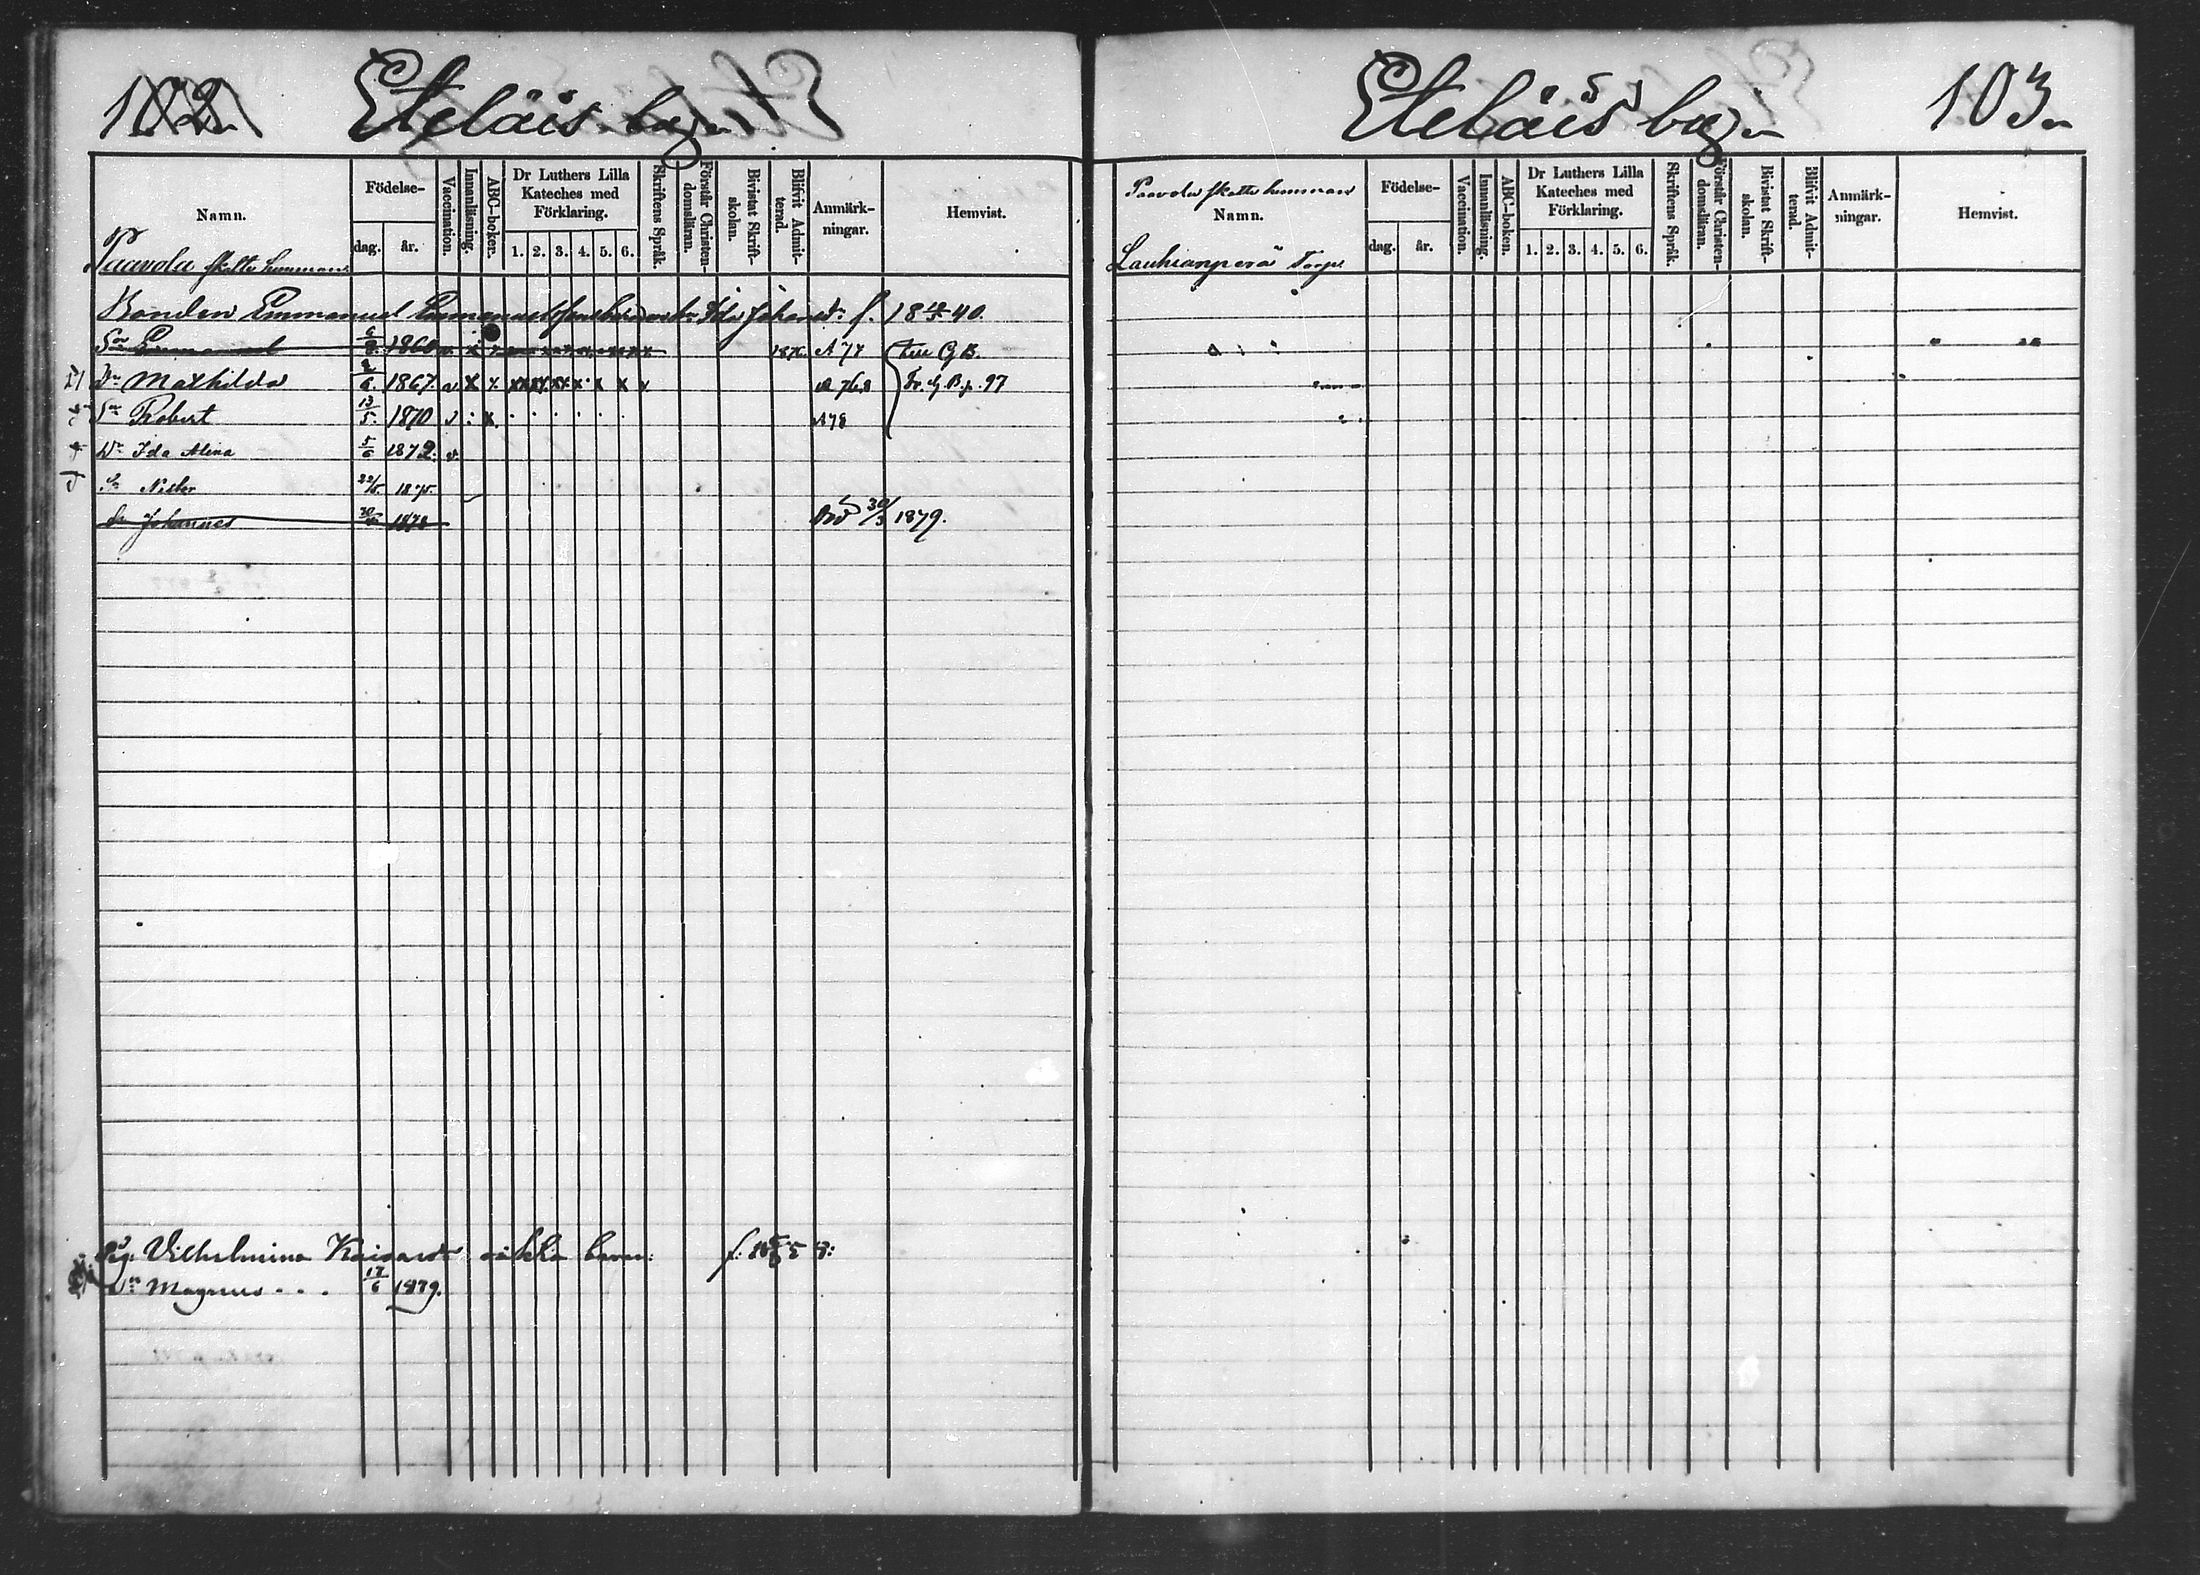 102.
Eteläis by.
Namn. Födelse- dag. år. Vaccination. Innanläsning. ABC-boken. Dr Luthers Lilla Kateches med Förklaring. 1. 2. 3. 4. 5. 6. Skriftens Språk. Förstår Christen-domsläran. Bivistat Skrift-skolan. Blifvit Admit-terad. Anmärk-ningar. Hemvist.
Paavola skatte hemman
Bonden Emmanuel Ida Johansdr f. 18 40.
Sn Emmanuel 1860 A 77 till G B.
Dr Mathilda 2/6 1867 v x x Fr. G. B. p. 97
Sn Robert 13/5. 1870 v A78
Dr Ida Alina 5/6 1872. v.
Sn 22/5. 1875.
Sn Johannes 1878 Död 30/3 1879.
Pig. Vilhelmina f:
Magnus . . . 17/6 1879.
Eteläis by.
103.
Paavola skatte hemman
Namn. Födelse- dag. år. Vaccination. Innanläsning. ABC-boken. Dr Luthers Lilla Kateches med Förklaring. 1. 2. 3. 4. 5. 6. Skriftens Språk. Förstår Christen-domsläran. Bivistat Skrift-skolan. Blifvit Admit-terad. Anmärk-ningar. Hemvist.
Lauhianperä Torp.